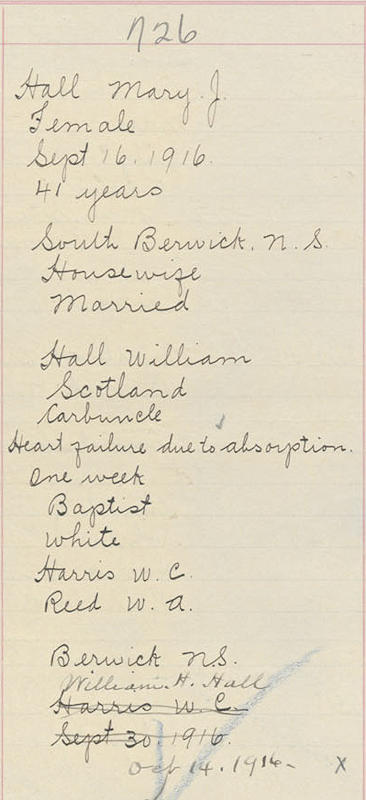 726
Hall Mary J.
Female
Sept 16. 1916.
41 years
South Berwick, N. S.
Housewife
Married
Hall William
Scotland
Carbuncle
Heart failure due to absorption.
One week
Baptist
White
Harris W. C.
Reed W. A.
Berwick N.S.
William H. Hall
Harris W. C.
Sept 30 1916.
Oct 14. 1916- X